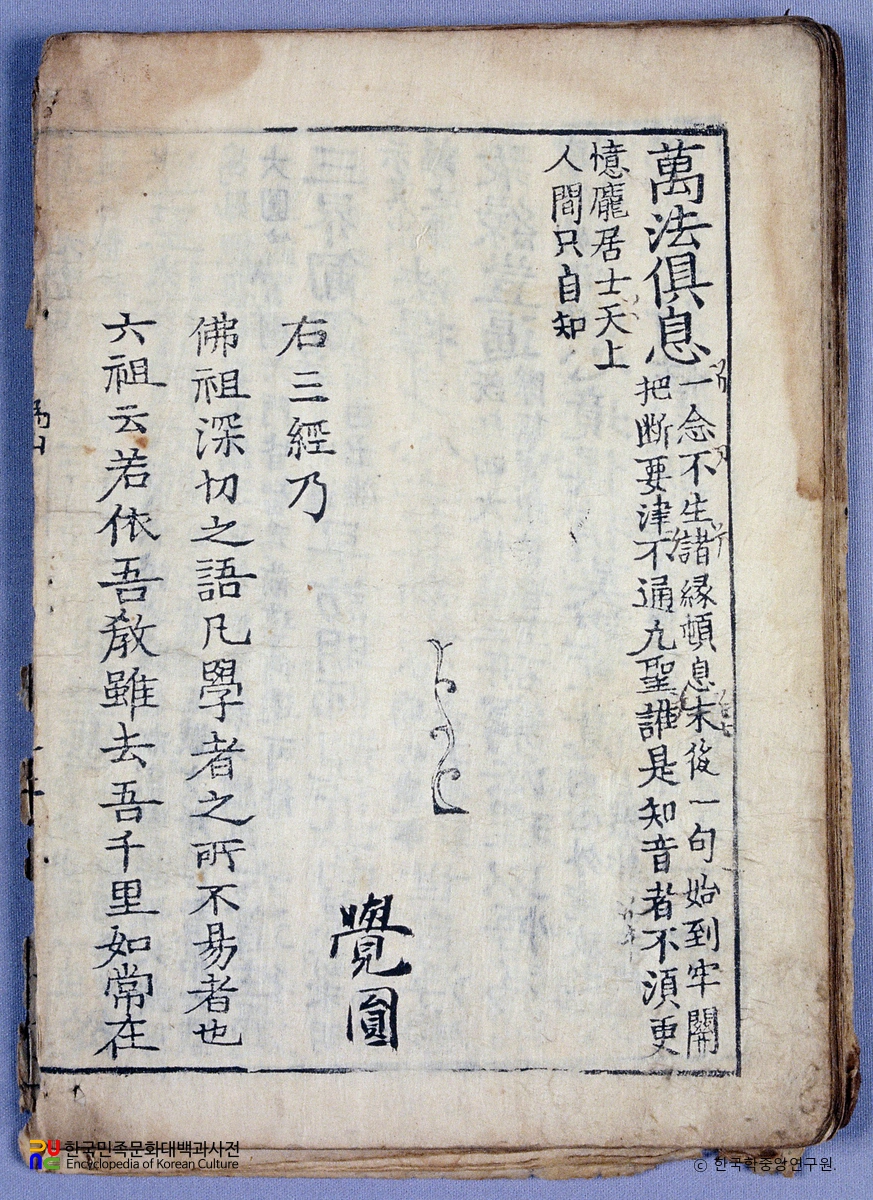 萬法俱息
一念不生諸緣頓息末後一句始到牢關
把断要津不通九聖誰是知音者不湏更
憶龐居士天上
人間只自知
覺圓
右三經乃
佛祖深切之語凡學者之所不易者也
六祖云若依吾教雖去吾千里如常在
한국민족문화대백과사전
Encyclopedia of Korean Culture
© 한국학중앙연구원.